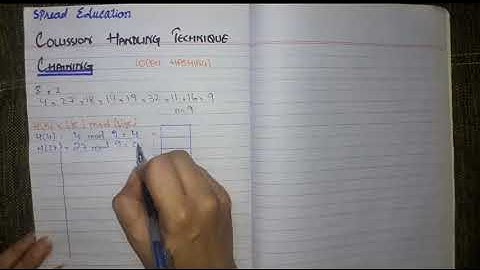 Spread Education
COLLISSION HANDLING TECHNIQUE
CHAINING (OPEN HASHING)
4, 27, 18, 14, 19, 32, 11, 16, 9
n=9
mod
H(4) = 4 mod 9 = 4
H(27) = 27 mod 9 =